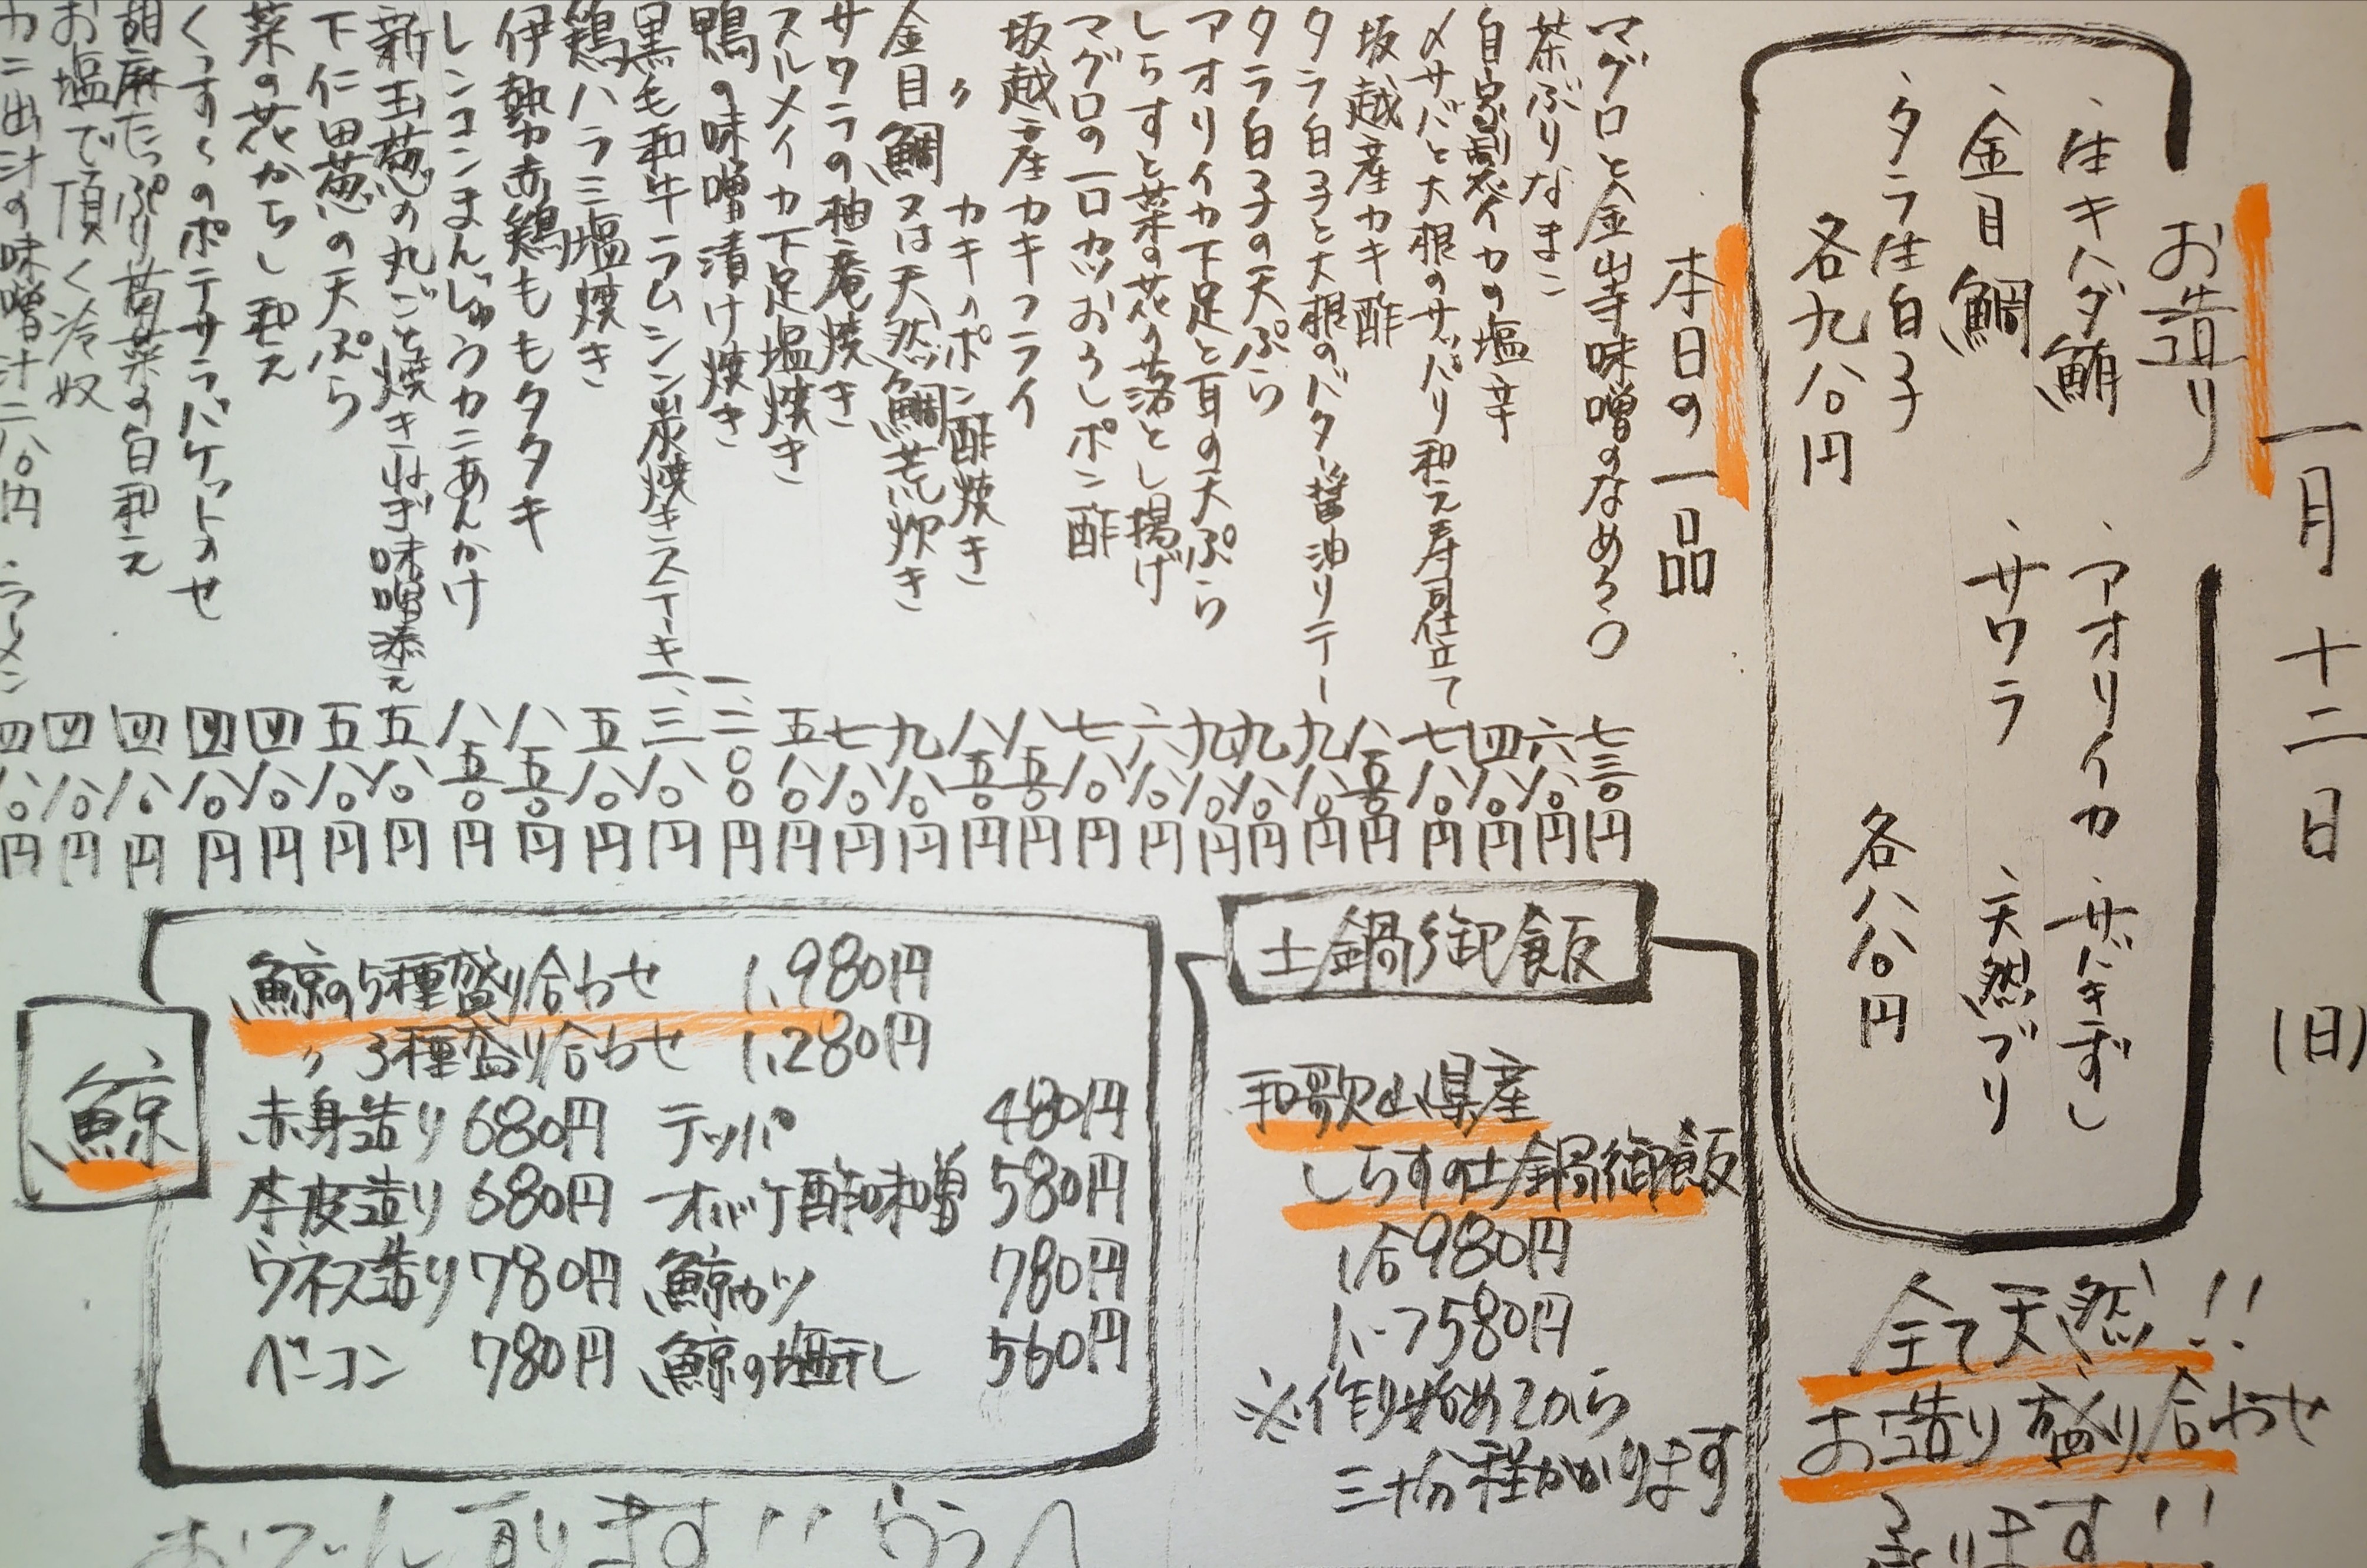 一月十二日(日)
お造り
・生キハダ鮪
・アオリイカ
・サバきずし
・金目鯛
・サワラ
・天然ブリ
・タラ生白子
各九八〇円
各八八〇円
全て天然!!
お造り盛り合わせ
承ります!!
本日の一品
マグロと金山寺味噌のなめろう 七三〇円
茶ぶりなまこ 六八〇円
自家製イカの塩辛 四八〇円
〆サバと大根のサッパリ和え寿司仕立て 七八〇円
坂越産カキ酢 八五〇円
タラ白子と大根のバター醤油ソテー 九八〇円
タラ白子の天ぷら 九八〇円
アオリイカ下足と耳の天ぷら 九八〇円
しらすと菜の花の落とし揚げ 六八〇円
マグロの一口カツおろしポン酢 七八〇円
坂越産カキフライ 八五〇円
〃 カキのポン酢焼き 八五〇円
金目鯛又は天然鯛荒炊き 九八〇円
サワラの柚庵焼き 七八〇円
スルメイカ下足塩焼き 五八〇円
鴨の味噌漬け焼き 一、二〇〇円
黒毛和牛ラムシン炭焼きステーキ 一、三八〇円
鶏ハラミ塩焼き 五八〇円
伊勢赤鶏ももタタキ 八五〇円
レンコンまんじゅうカニあんかけ 八五〇円
新玉葱の丸ごと焼きねぎ味噌添え 五八〇円
下仁田葱の天ぷら 五八〇円
菜の花からし和え 四八〇円
くんすくのポテサラバケットのせ 四八〇円
胡麻たっぷり菊菜の白和え 四八〇円
お塩で頂く冷奴 四八〇円
カニ出汁の味噌汁二八〇円・ラーメン 四八〇円
土鍋御飯
和歌山県産
しらすの土鍋御飯
1合980円
ハーフ580円
※作り始めてから
三十分程かかります
鯨
鯨の5種盛り合わせ 1,980円
〃 3種盛り合わせ 1,280円
赤身造り 680円 テッパ 480円
本皮造り 680円 オバケ酢味噌 580円
ウネス造り 780円 鯨カツ 780円
ベーコン 780円 鯨の塩干し 560円
おでん有ります!!うらへ